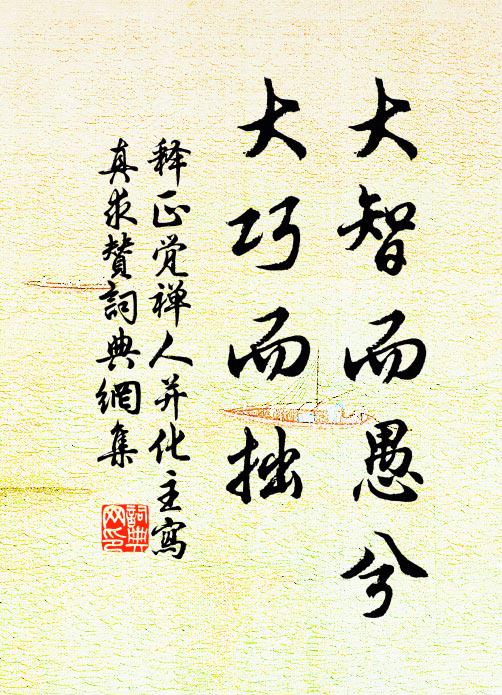 大智而愚兮
大巧而拙
释正觉禅人并化主寫
真求赞詞典網集
詞典
网印